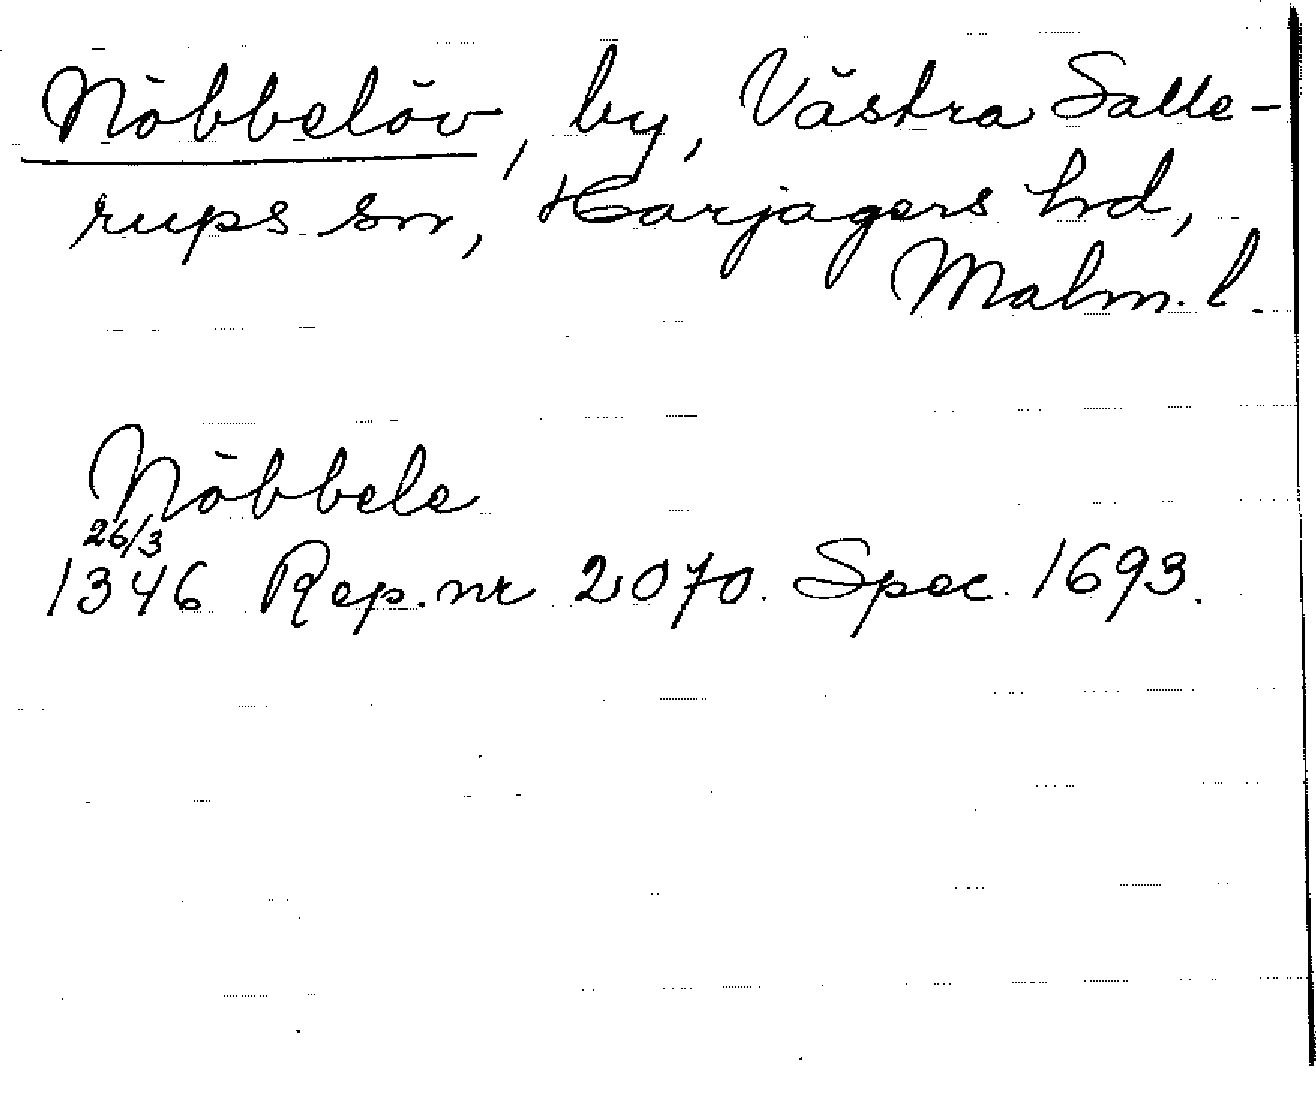 Nöbbelöv, by, Västra Salle-
rups sn, Harjagers hd,
Malm. l.
Nöbbele
26/3
1346 Rep. nr 2070. Spec. 1693.